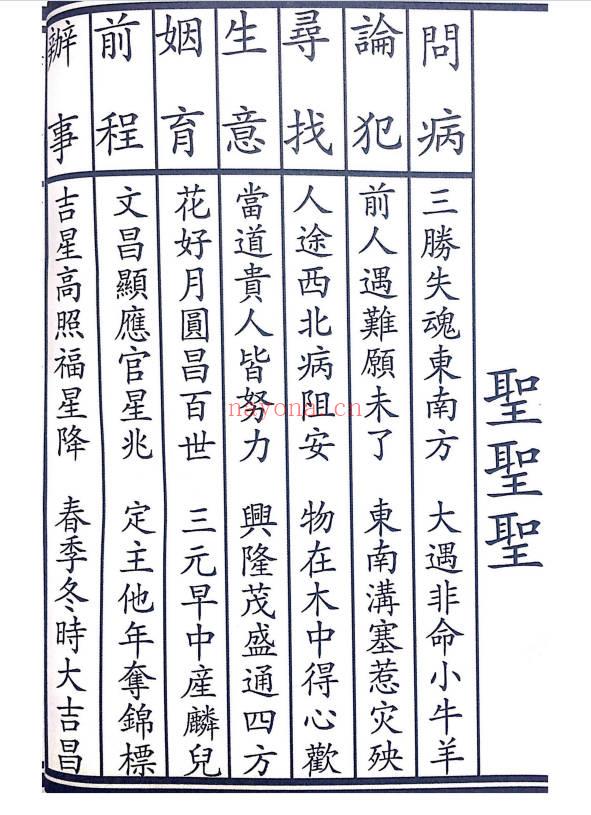 聖聖聖
問病 三勝失魂東南方 大遇非命小牛羊
論犯 前人遇難願未了 東南溝塞惹灾殃
尋找 人途西北病阻安 物在木中得心歡
生意 當道貴人皆努力 興隆茂盛通四方
姻育 花好月圓昌百世 三元早中産麟兒
前程 文昌顯應官星兆 定主他年奪錦標
辦事 吉星高照福星降 春季冬時大吉昌
nayona.cn